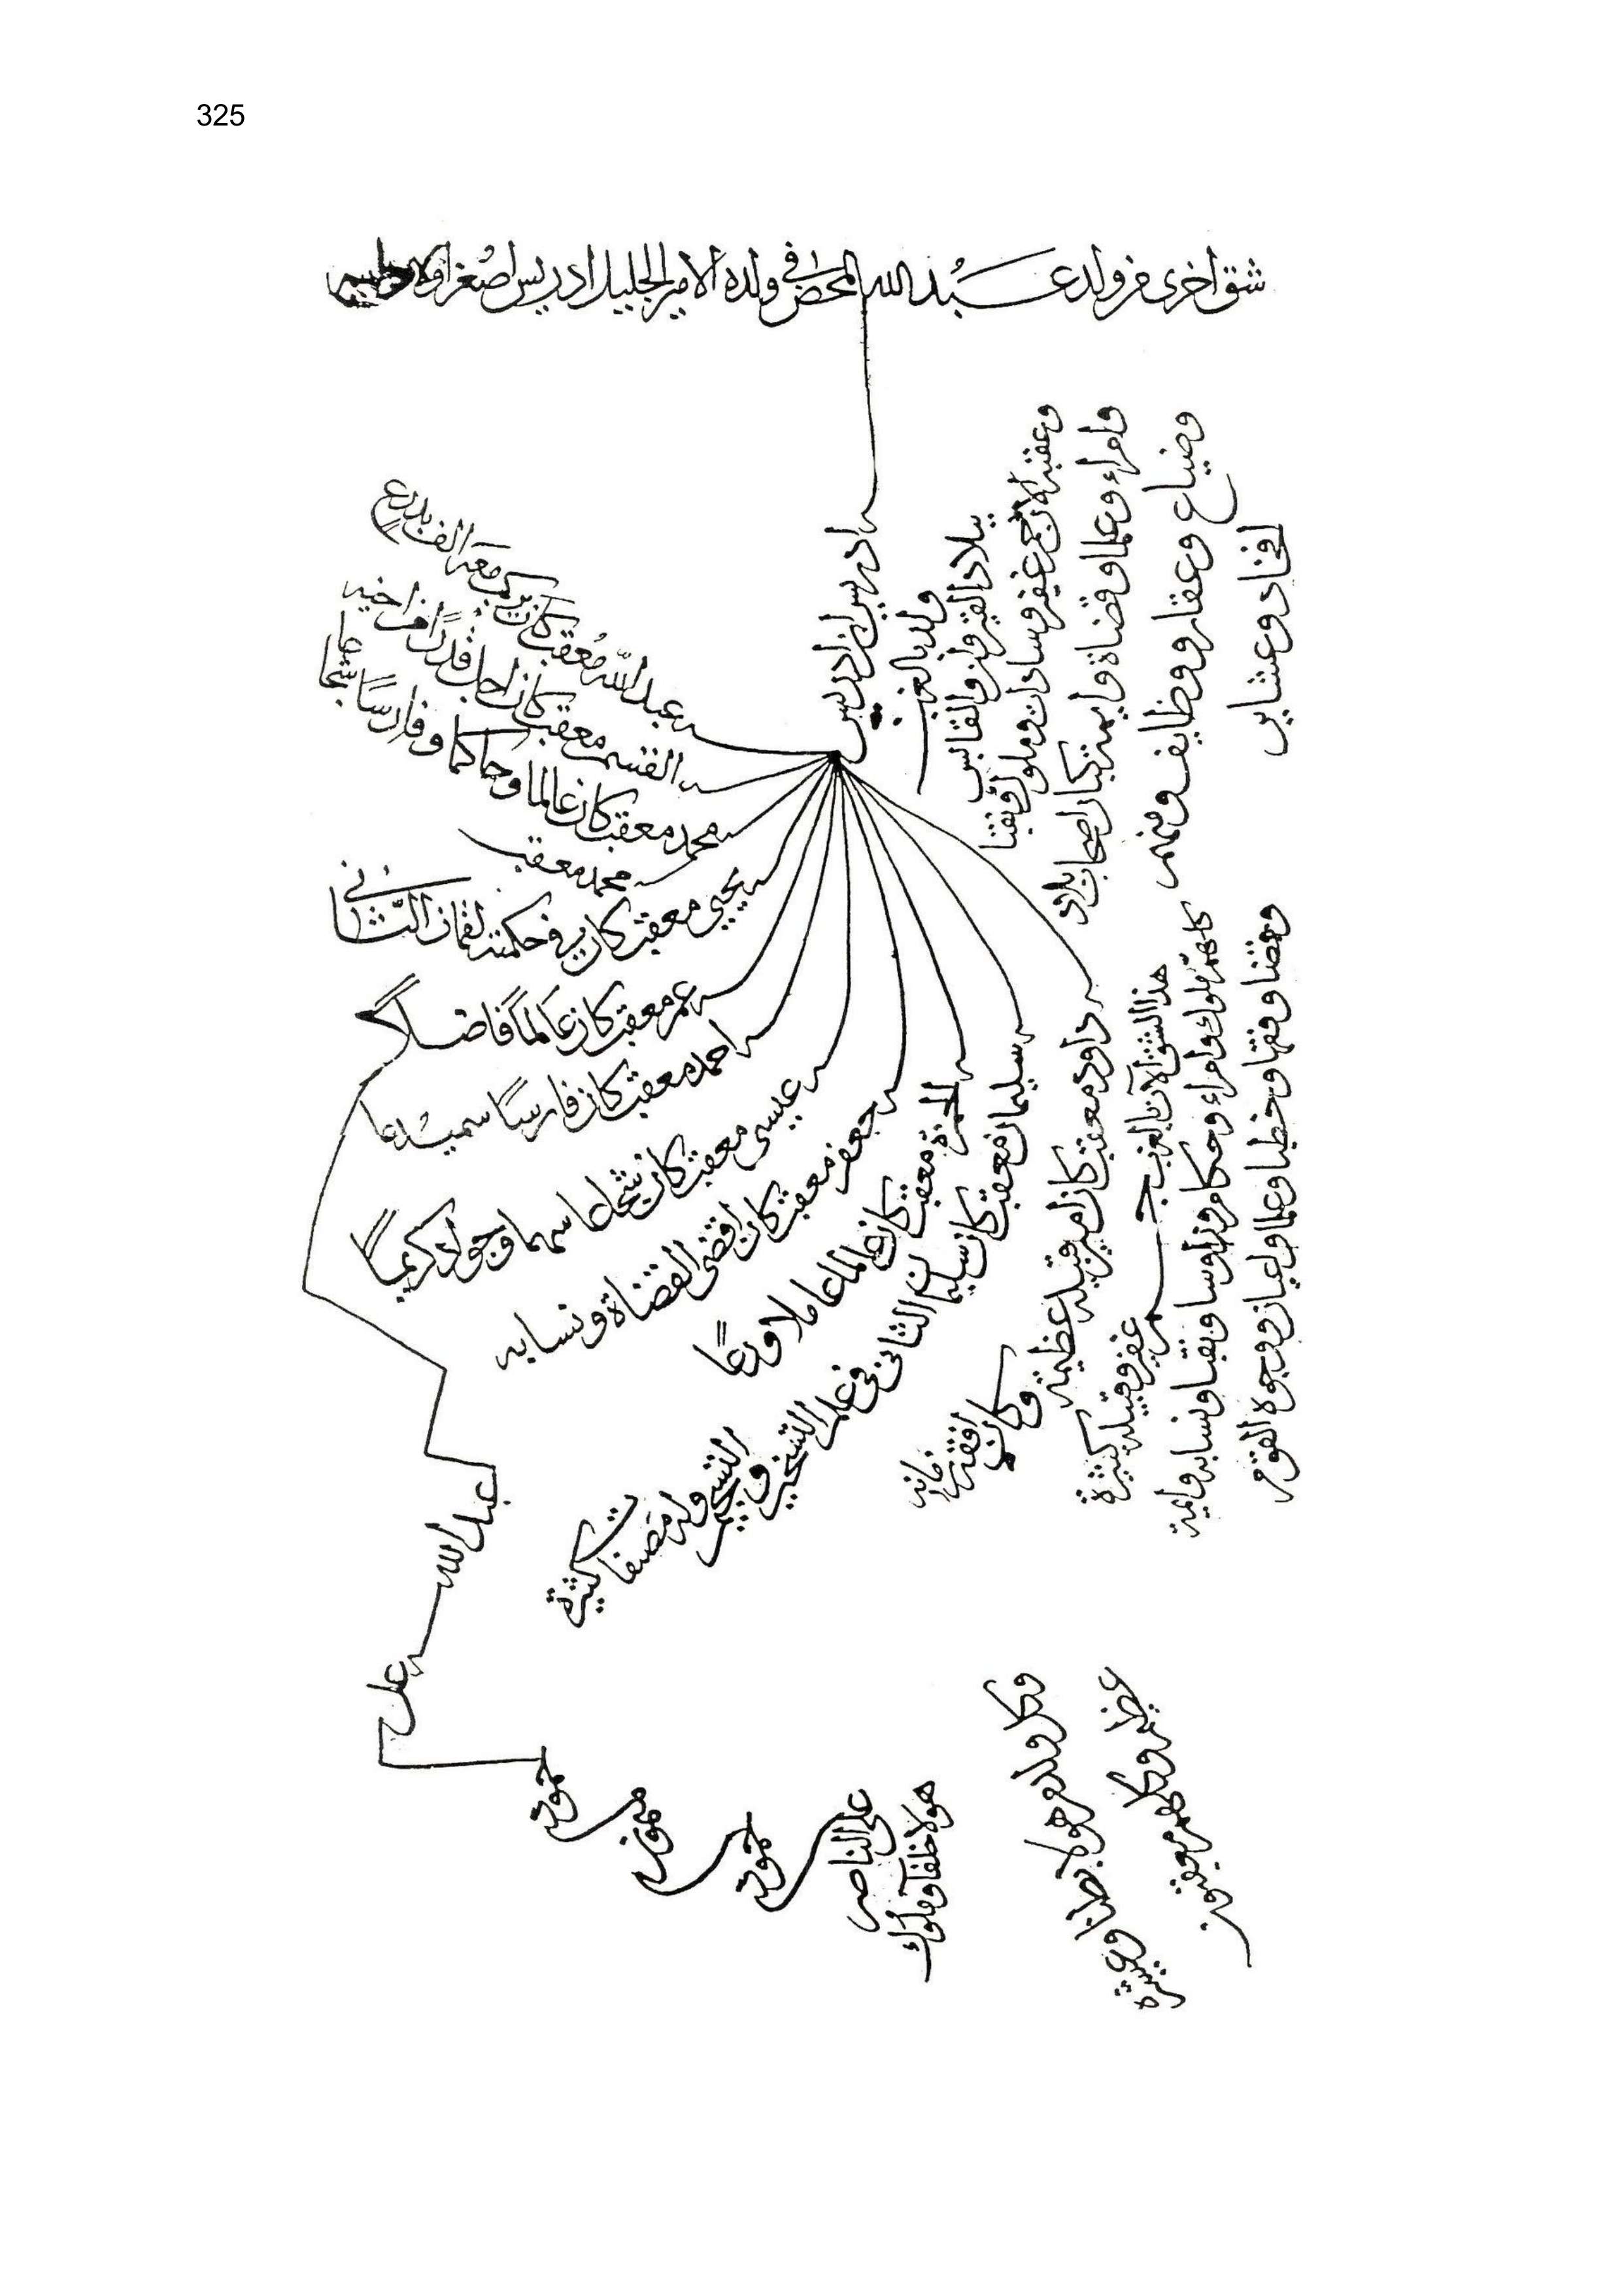 325
شق اخرى من ولد عبد الله المحض في ولده الامير الجليل ادريس اصغر اولاد
ادريس ابن ادريس
ولد بالغرب
ببلاد القيروان والفاس
وعقبه الان جم غفير وسادات وملوك ونقبا
وامراء وعلما وقضاة وايمة كبار اصحاب بلاد
وضياع وعقار ووظايف ومنهم
افخاد وعشاير
عبد الله معقب كان يركب معه الف بدرع
القسم معقب كان اجل قدرًا من اخيه
محمد معقب كان عالما وحاكما وفارسًا شجاعا
محمد معقب
يحيى معقب كان في حكمته لقمان الثاني
عمر معقب كان عالمًا فاضلًا
احمد معقب كان فارسًا سميدعا
عيسى معقب كان شجاعا سهما وجوادًا كريمًا
جعفر معقب كان اقضى القضاة ونسابه
حمزة معقب كان عالما عاملا ورعًا
سليمان معقب كان سليمان الثاني في علم التسخير و
التنجيم وله مصنفات كثيرة
داود معقب كان امير قبيلة عظيمة
وكان
افقه
زمانه
هذا الشق الآن بالغرب جم
غفير وقبيله كثيرة
كلهم ملوك وامراء وحكام ووزرا وسا ونقبا ونسابه وايمة
وقضا وفقها وخطبا وعلما واعيان ووجوه القوم
عبد الله
على
حمود
ميمون
حمود
على الناصر
هولا خلفآ وملوك
وكل ولد هولا بطنا وعشيرة
عظيم وكلهم معقبون